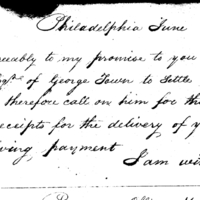 Philadelphia June
greeably to my promise to you
of George Town to Settle
therefore call on him for th
eceipts for the delivery of y
iving payment
I am wi